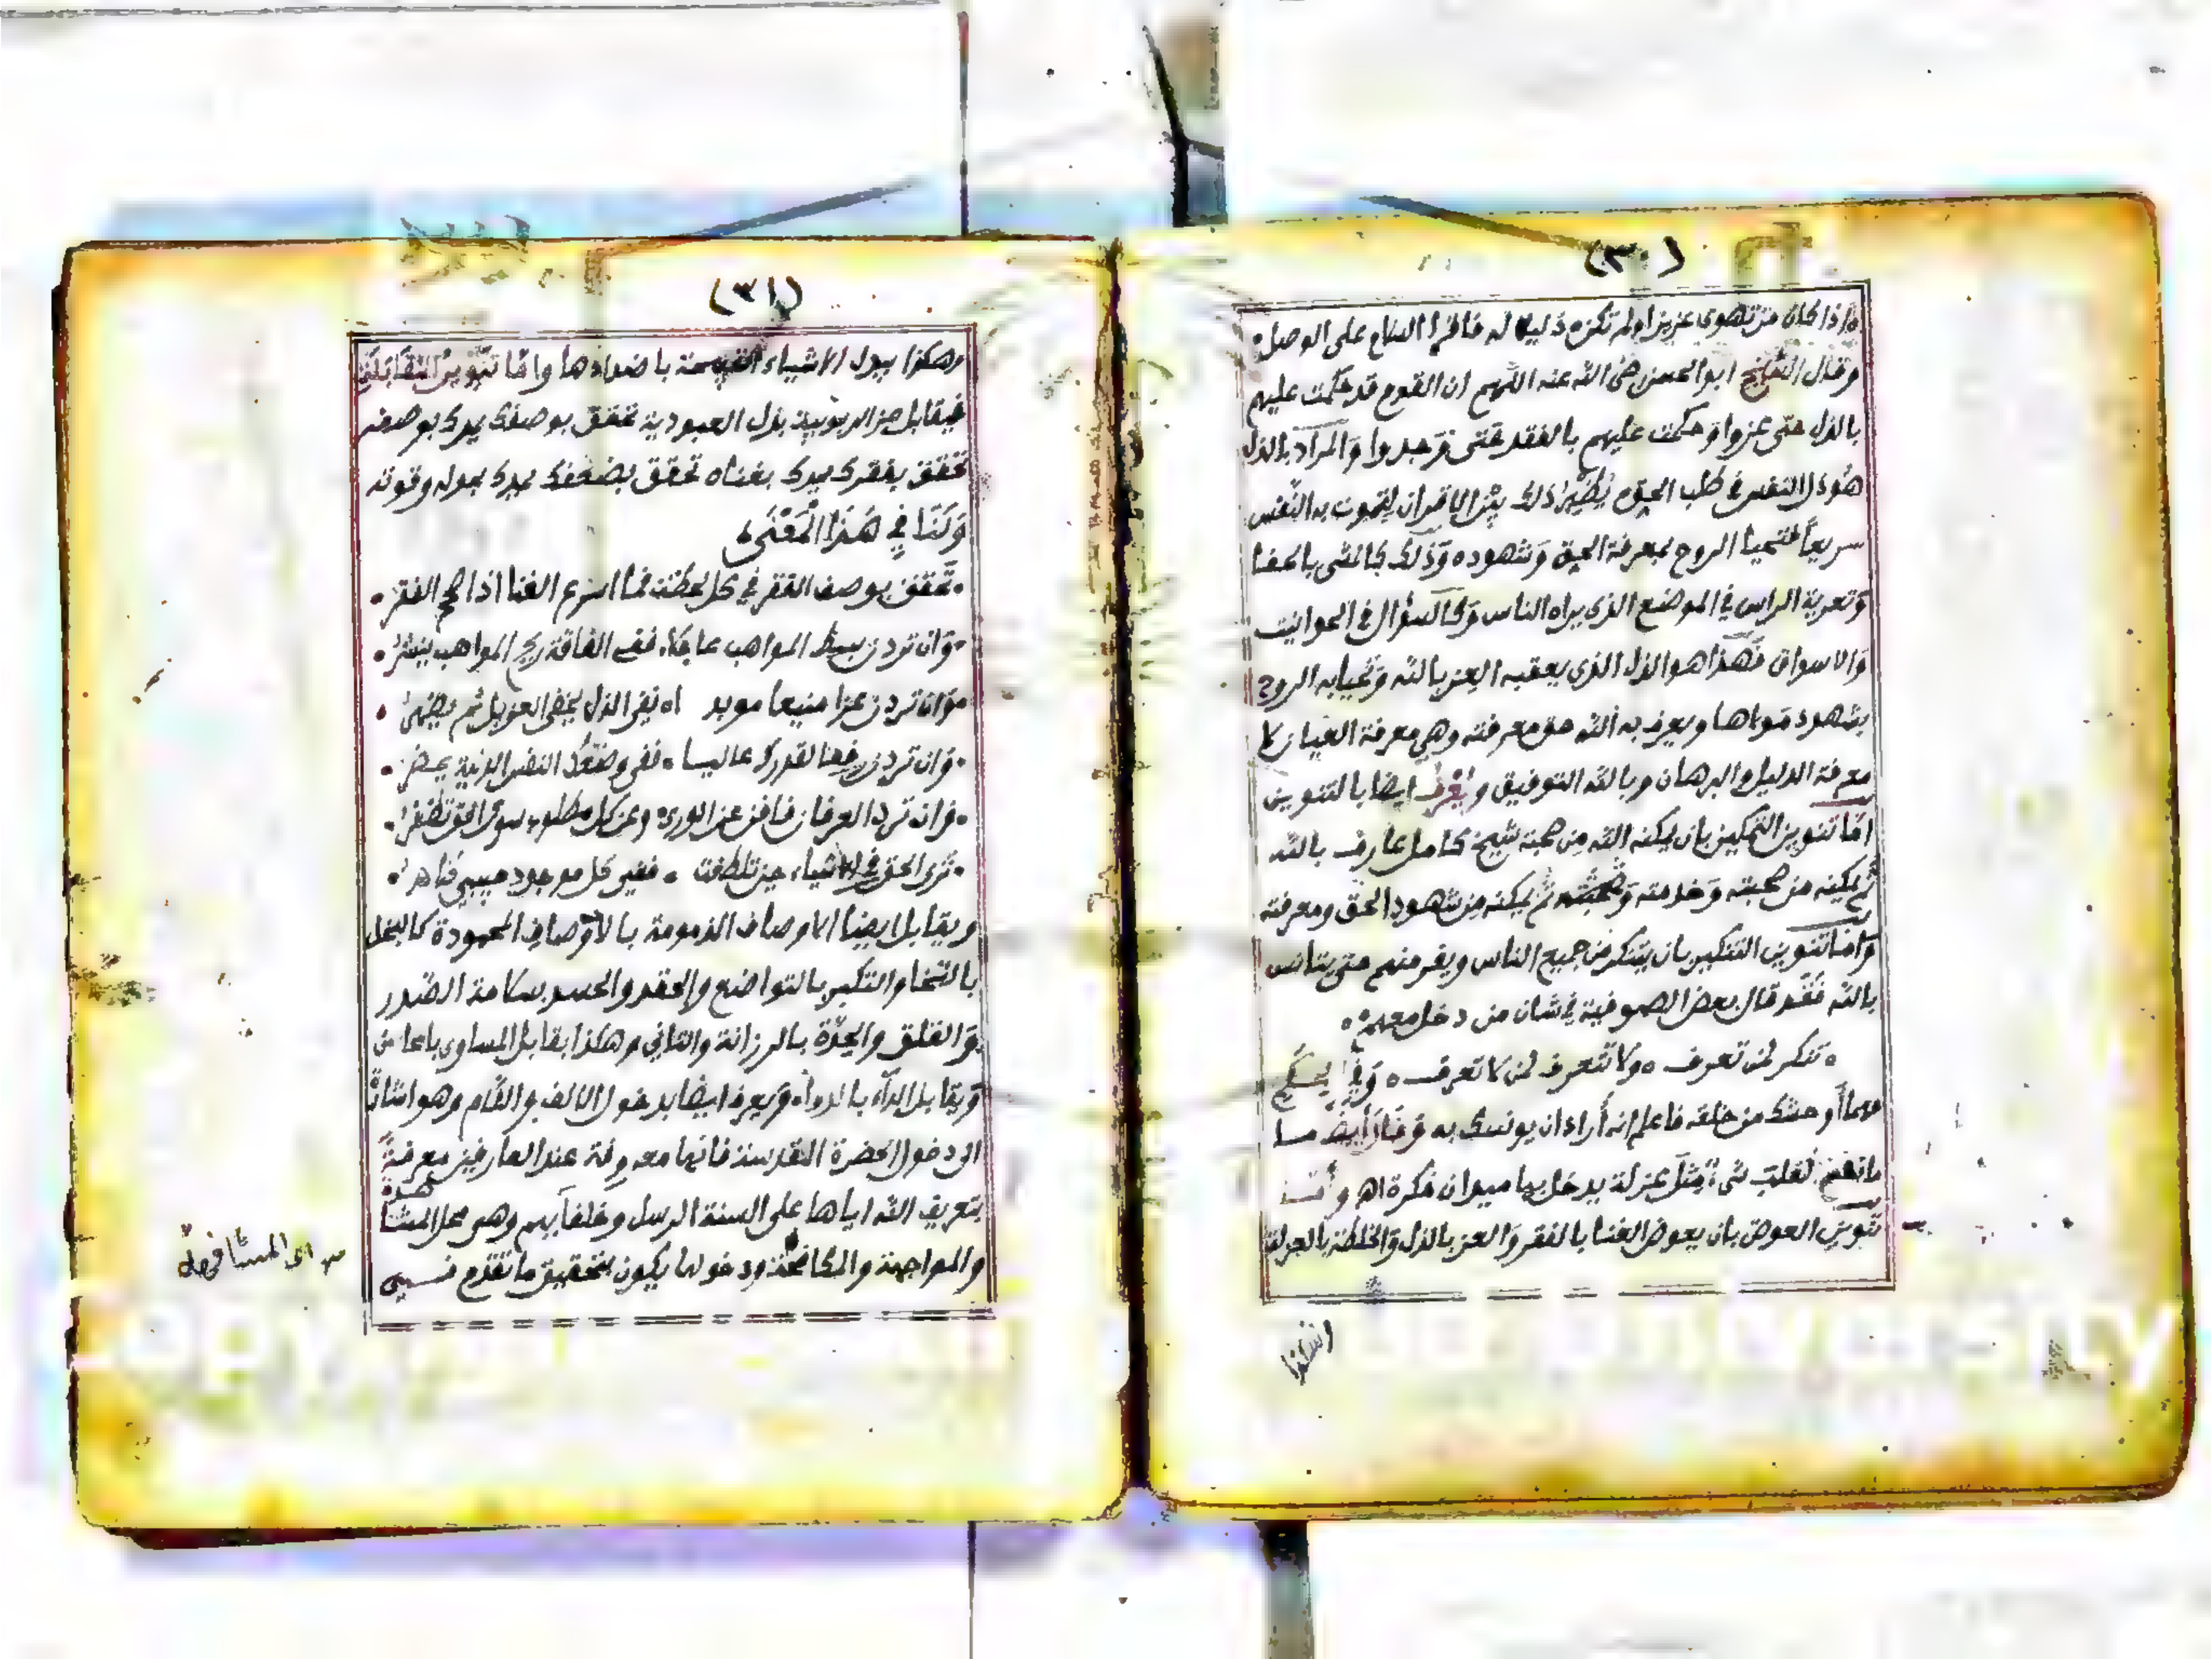 (٣٠)
اذا كان من تهوى عزيزا ولم تكن ذليلا له فاقرا السلام على الوصل
وقال الشيخ ابو الحسن رضى الله عنه اللهم ان القوم قد حكمت عليهم
بالذل حتى عزوا وحكمت عليهم بالفقد حتى وجدوا والمراد بالذل
هو ذل النفس في طلب الحق ذلك بين الاقران لتموت به النفس
سريعا فتحيا الروح بمعرفة الحق وشهوده وذلك كالمشى بالحفا
وتعرية الراس في الموضع الذى يراه الناس وكالسؤال في الحوانيت
والاسواق فهذا هو الذل الذى يعقبه العز بالله وتحيا به الروح
بشهود مولاها ويعرف به الله حق معرفته وهي معرفة العيان لا
معرفة الدليل والبرهان وبالله التوفيق ويعرف ايضا بالتنوين
اما تنوين التمكين بان يمكنه الله من صحبة شيخ كامل عارف بالله
ثم يمكنه من محبته وخدمته ثم يمكنه من شهود الحق ومعرفته
واما تنوين التنكير بان يتنكر من جميع الناس ويفر منهم حتى يتانس
بالله فقد قال بعض الصوفية في شان من دخل معهم
تنكر لمن تعرف ولا تتعرف لمن لا تعرف وفي الحكم
مهما أوحشك من خلقه فاعلم انه أراد ان يونسك به وقال أيضا
ما نفع القلب شي مثل عزلة يدخل بها ميدان فكرة اه وأما
تنوين العوض بان يعوض الغنا بالفقر والعز بالذل والخلطة بالعزلة
(٣١)
وهكذا يبدل الاشياء القبيحة باضدادها واما تنوين المقابلة
فيقابل عز الربوبية بذل العبودية تحقق بوصفك يمدك بوصفه
تحقق بفقرك يمدك بغناه تحقق بضعفك يمدك بحوله وقوته
ولنا في هذا المعنى
تحقق بوصف الفقر في كل لحظة فما اسرع الغنا اذا صح الفقر
وان تردن بسط المواهب عاجلا ففى الفاقة ريح المواهب ينشر
وان تردن عزا منيعا موبد اه ففى الذل يخفى العز بل ثم يظهر
وان تردن رفعا لقدرك عاليا ففى وضعك النفس الدنية يحضر
وان ترد العرفان فافن عن الورى وعن كل مطلوب سوى الحق تظفر
ترى الحق في الاشياء حين تلطفت ففى كل موجود حبيبي ظاهر
ويقابل ايضا الاوصاف المذمومة بالأوصاف المحمودة كالبخل
بالسخا والتكبر بالتواضع والحقد والحسد بسلامة الصدر
والقلق والحدة بالرزانة والتانى وهكذا يقابل المساوى بالمحاسن
ويقابل الداء بالدواء ويعرف ايضا بدخول الالف واللام وهو اشارة
الى دخول الحضرة القدسية فانها معروفة عند العارفين معرفة
بتعريف الله اياها على السنة الرسل وخلفائهم وهو محل المشاهدة
والمواجهة والمكافحة ودخولها يكون بتحقيق ما تقدم